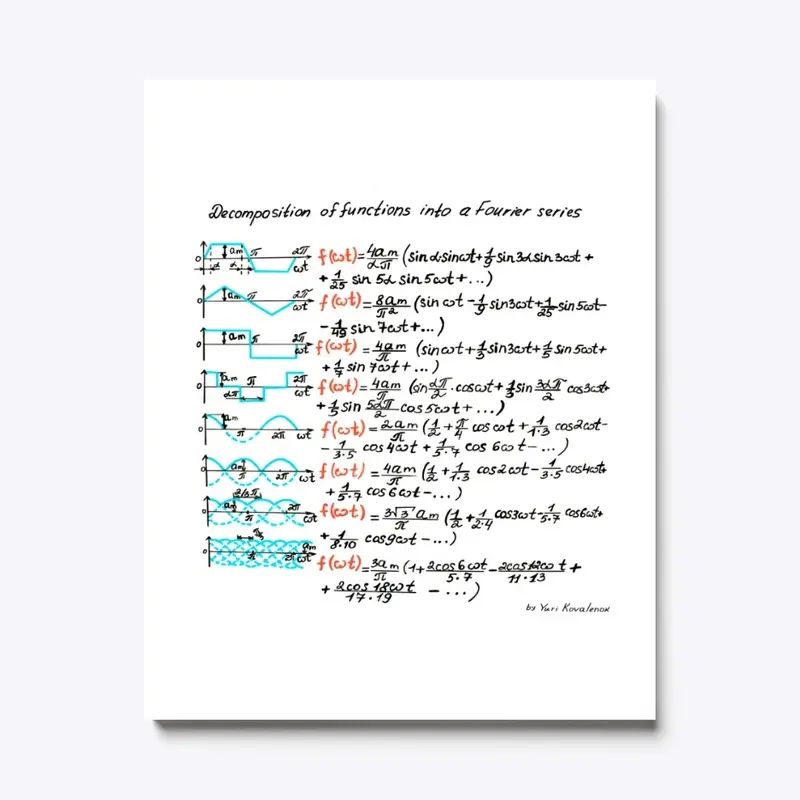 Decomposition of functions into a Fourier series
0 am α α π 2π ωt
f(ωt)=4am/απ (sinαsinωt+1/9 sin3αsin3ωt+
+1/25 sin5α sin5ωt+...)
0 am π 2π ωt
f(ωt)=8am/π² (sinωt-1/9 sin3ωt+1/25 sin5ωt-
-1/49 sin7ωt+...)
0 am π 2π ωt
f(ωt)=4am/π (sinωt+1/3 sin3ωt+1/5 sin5ωt+
+1/7 sin7ωt+...)
0 am απ π 2π ωt
f(ωt)=4am/π (sin απ/2 ·cosωt+1/3 sin 3απ/2 cos3ωt+
+1/5 sin 5απ/2 cos5ωt+...)
0 am π 2π ωt
f(ωt)=2am/π (1/2+π/4 cosωt+1/1·3 cos2ωt-
-1/3·5 cos4ωt+1/5·7 cos6ωt-...)
0 am π 2π ωt
f(ωt)=4am/π (1/2+1/1·3 cos2ωt-1/3·5 cos4ωt+
+1/5·7 cos6ωt-...)
0 am 2/3π π 2π ωt
f(ωt)=3√3am/π (1/2+1/2·4 cos3ωt-1/5·7 cos6ωt+
+1/8·10 cos9ωt-...)
0 am π 2π ωt
f(ωt)=3am/π (1+2cos6ωt/5·7-2cos12ωt/11·13+
+2cos18ωt/17·19-...)
by Yuri Kovalenok